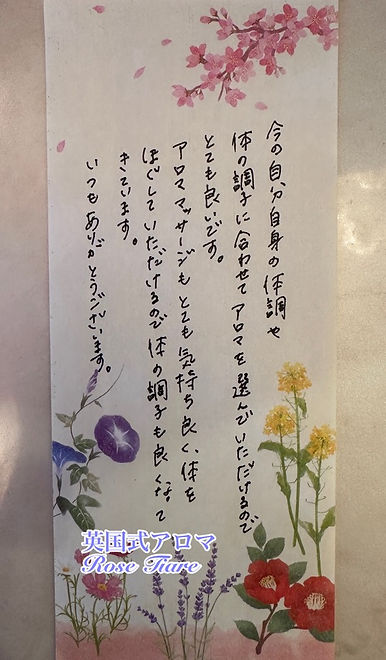 今の自分自身の体調や
体の調子に合わせてアロマを選んでいただけるので
とても良いです。
アロママッサージもとても気持ち良く、体を
ほぐしていただけるので体の調子も良くなって
きています。
いつもありがとうございます。
英国式アロマ
Rose Tiare